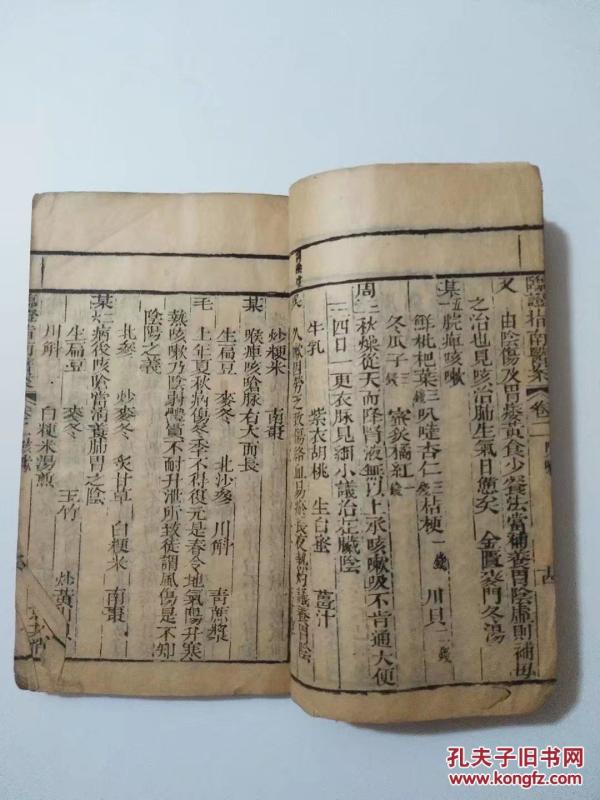 臨證指南醫案 卷二 咳嗽 古
又 由陰傷及胃痿黃食少餐法當補養胃陰虛則補母
之治也見咳治肺生氣日憊矣 金匱麥門冬湯
某五 脘痺咳嗽
鮮枇杷葉三 叭噠杏仁三 桔梗一錢 川貝二錢
冬瓜子三錢 蜜炙橘紅一錢
周三 秋燥從天而降腎液無以上承咳嗽吸不肯通大便
三四日一更衣脉見細小議治在臟陰
牛乳 紫衣胡桃 生白蜜 薑汁
炒粳米 南棗
某 喉痺咳嗆脉右大而長
生扁豆 麥冬 北沙參 川斛 青蔗漿
毛 上年夏秋病傷冬季不得復元是春令地氣陽升寒
熱咳嗽乃陰弱體質不耐升泄所致徒謂風傷是不知
陰陽之義
北參 炒麥冬 炙甘草 白粳米 南棗
某 病後咳嗆當清養肺胃之陰
生扁豆 麥冬 玉竹 炒黃川貝
川斛 白粳米湯煎
孔夫子旧书网
www.kongfz.com